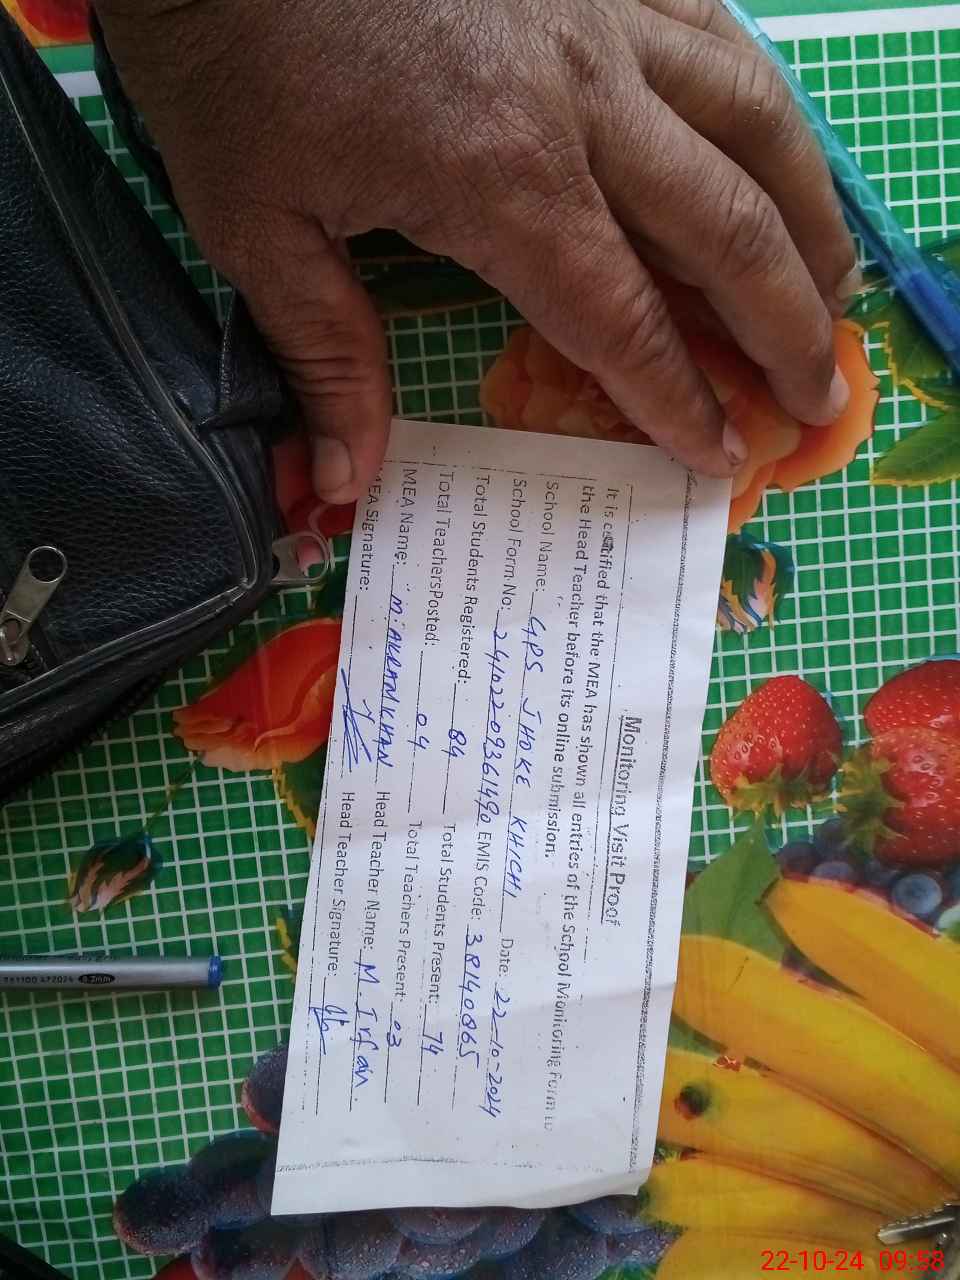 Monitoring Visit Proof
It is certified that the MEA has shown all entries of the School Monitoring Form to
the Head Teacher before its online submission.
School Name: GPS JHOKE KHICHI Date: 22-10-2024
School Form No: 24102209361490 EMIS Code: 38140065
Total Students Registered: 84 Total Students Present: 74
Total Teachers Posted: 04 Total Teachers Present: 03
MEA Name: M. AKRAM KHAN Head Teacher Name: M. Irfan
MEA Signature: Head Teacher Signature:
0.2mm
22-10-24 09:58